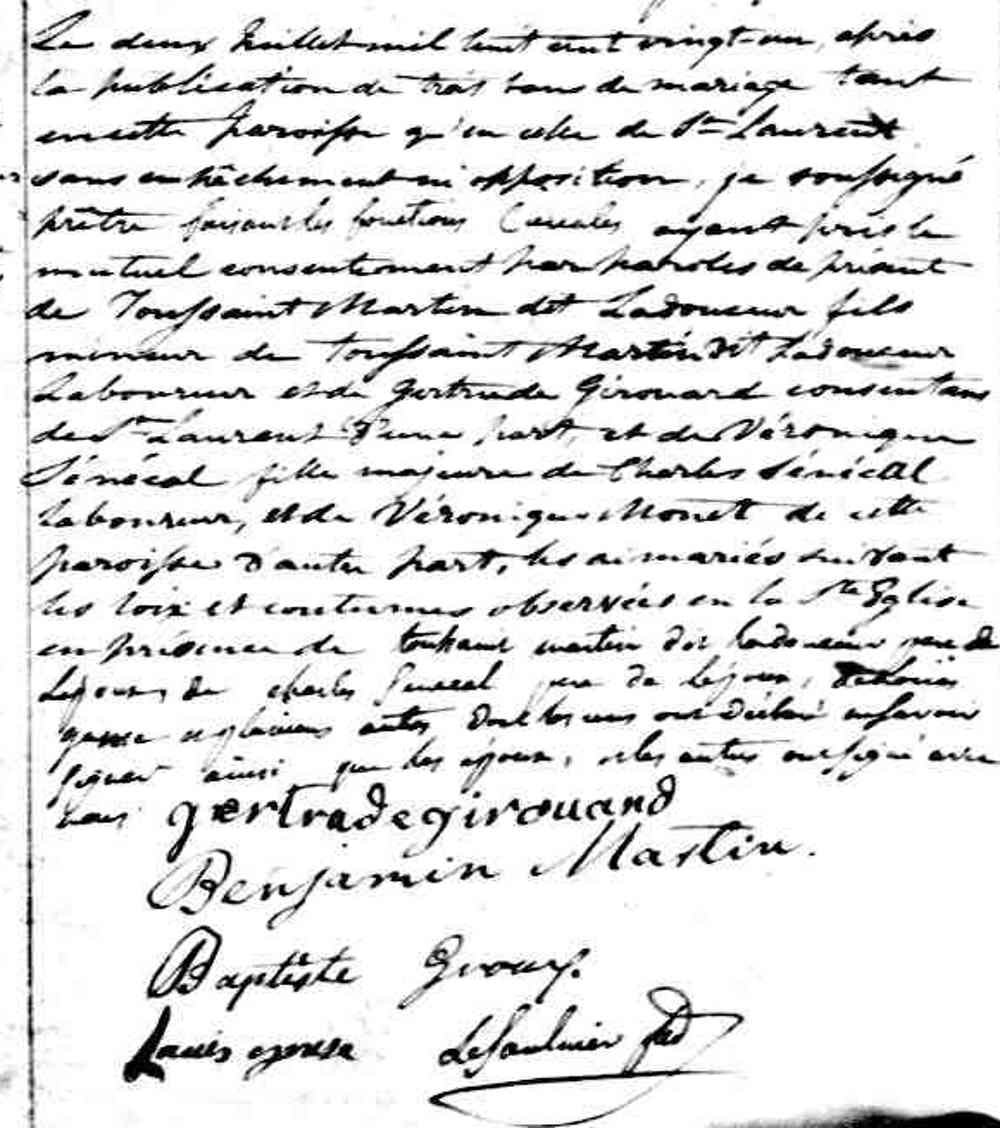 Le deux Juillet mil huit cent vingt-un, après
la publication de trois bans de mariage tant
en cette paroisse qu'en celle de St Laurent
sans empêchement ni opposition, je soussigné
prêtre faisant les fonctions Curiales ayant pris le
mutuel consentement par paroles de présent
de Toussaint Martin dit Ladouceur fils
mineur de toussaint Martin dit Ladouceur
Laboureur et de Gertrude Girouard consentans
de St Laurent d'une part, et de Véronique
Sénécal fille majeure de Charles Sénécal
laboureur, et de Véronique Monet de cette
paroisse d'autre part, les ai mariés suivant
les loix et coutumes observées en la Ste Eglise
en présence de toussaint martin dit ladouceur pere de
l'epoux, de charles Senecal pere de l'epouse, de Louis
et plusieurs autres dont les uns ont déclaré ne savoir
signer ainsi que les epoux, et les autres ont signé avec
nous gertrade girouard
Benjamin Martin.
Baptiste Giroux.
Louis LeSaulnier